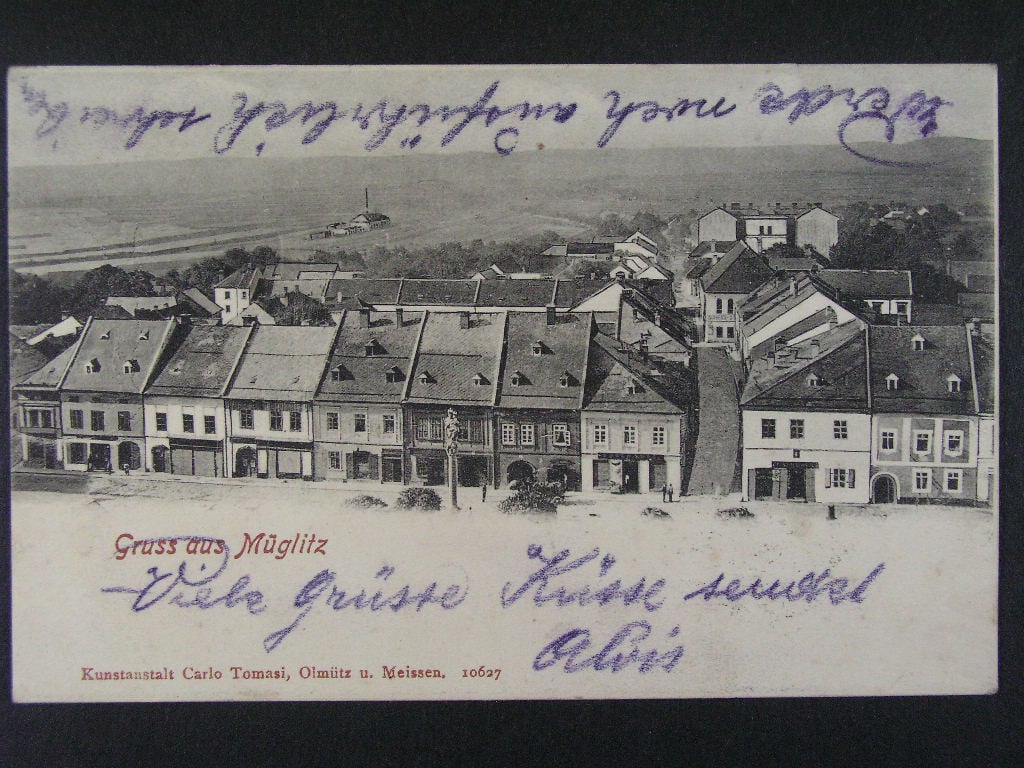 Werde noch ausführlich schreiben
Gruss aus Müglitz
Viele Grüsse Küsse sendet
Alois
Kunstanstalt Carlo Tomasi, Olmütz u. Meissen. 10627